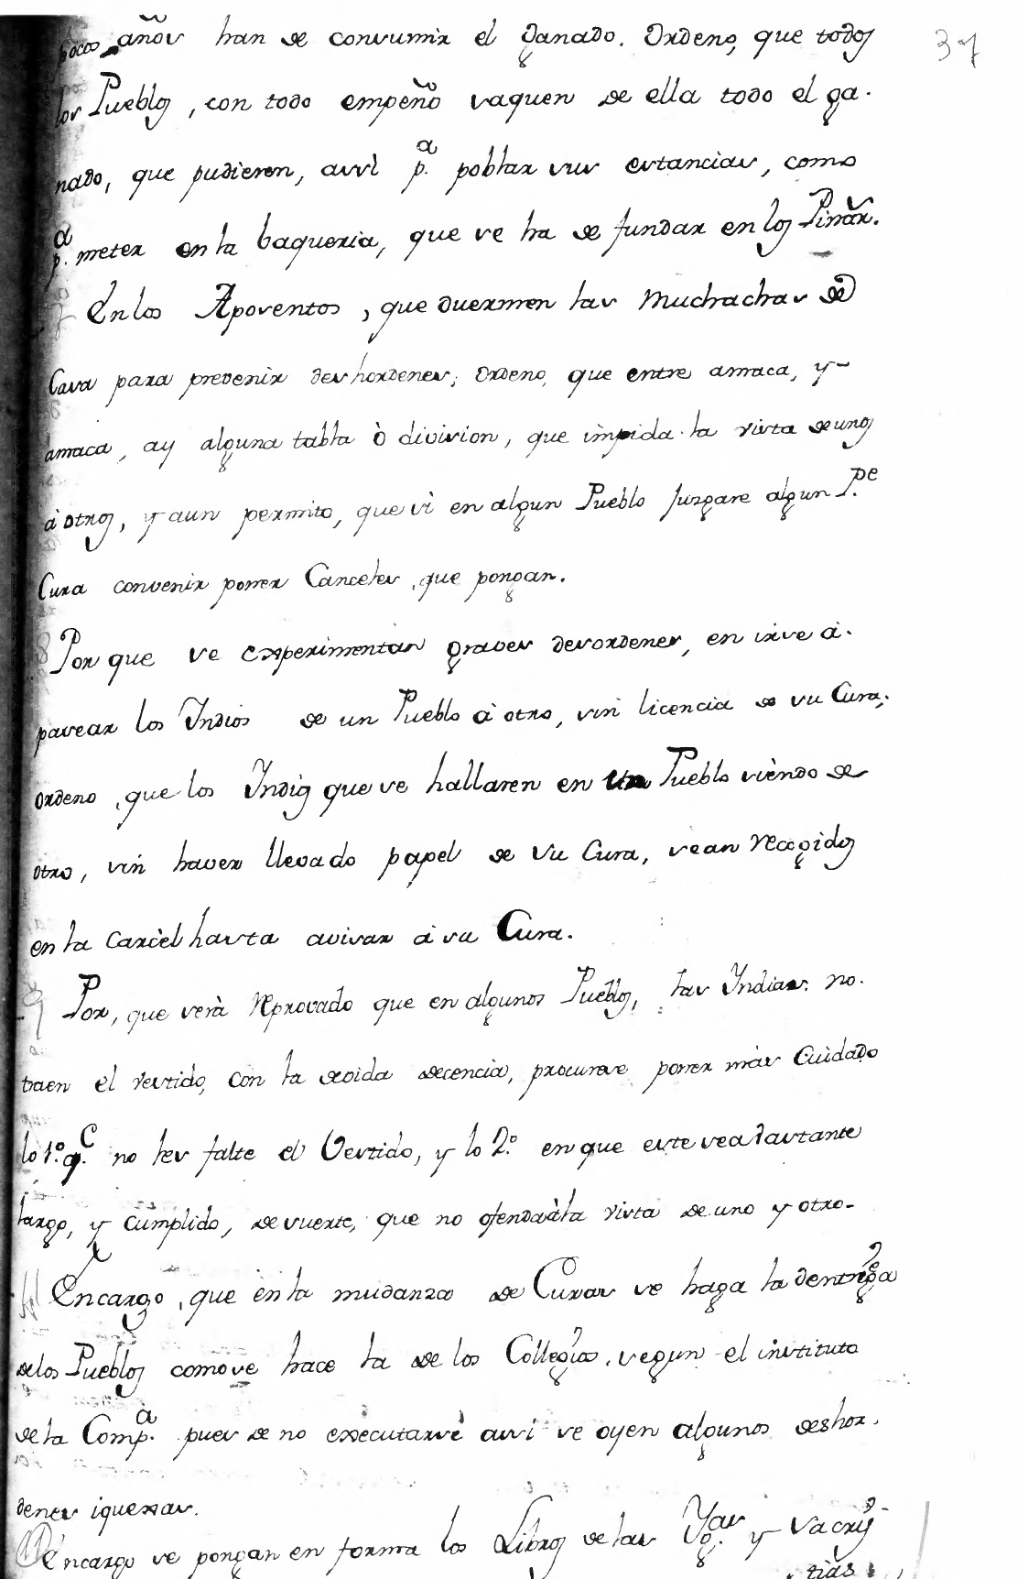 pocos años han de consumir el ganado. Ordeno, que todos
37
los Pueblos, con todo empeño saquen de ella todo el ga-
nado, que pudieren, assi p.ª poblar sus estancias, como
p.ª meter en la baqueria, que se ha de fundar en los Pinar.s
En los Aposentos, que duermen las Muchachas de
Casa para prevenir deshordenes; ordeno, que entre amaca, y
amaca, ay alguna tabla ò division, que impida la vista de unos
à otros, y aun permito, que si en algun Pueblo juzgare algun P.e
Cura convenir poner Canceles, que pongan.
8 Por que se experimentan graves desordenes, en irse à
pasear los Indios de un Pueblo à otro, sin licencia de su Cura;
ordeno, que los Indios que se hallaren en un Pueblo siendo de
otro, sin haver llevado papel de su Cura, sean recogidos
en la Carcel hasta avisar à su Cura.
9 Por, que serà reprovado que en algunos Pueblos, las Indias no
traen el vestido, con la devida decencia, procurese poner màs Cuidado
lo 1.º q.e no les falte el Vestido, y lo 2.º en que este sea bastante
largo, y cumplido, de suerte, que no ofenda à la vista de uno y otro.
Encargo, que en la mudanza de Curas se haga la dentrega
de los Pueblos como se hace la de los Collegios, segun el instituto
de la Comp.ª pues de no executarse assi se oyen algunos deshor-
denes iquexas.
Encargo se pongan en forma los Libros de las Yg.as y Sacris
tias